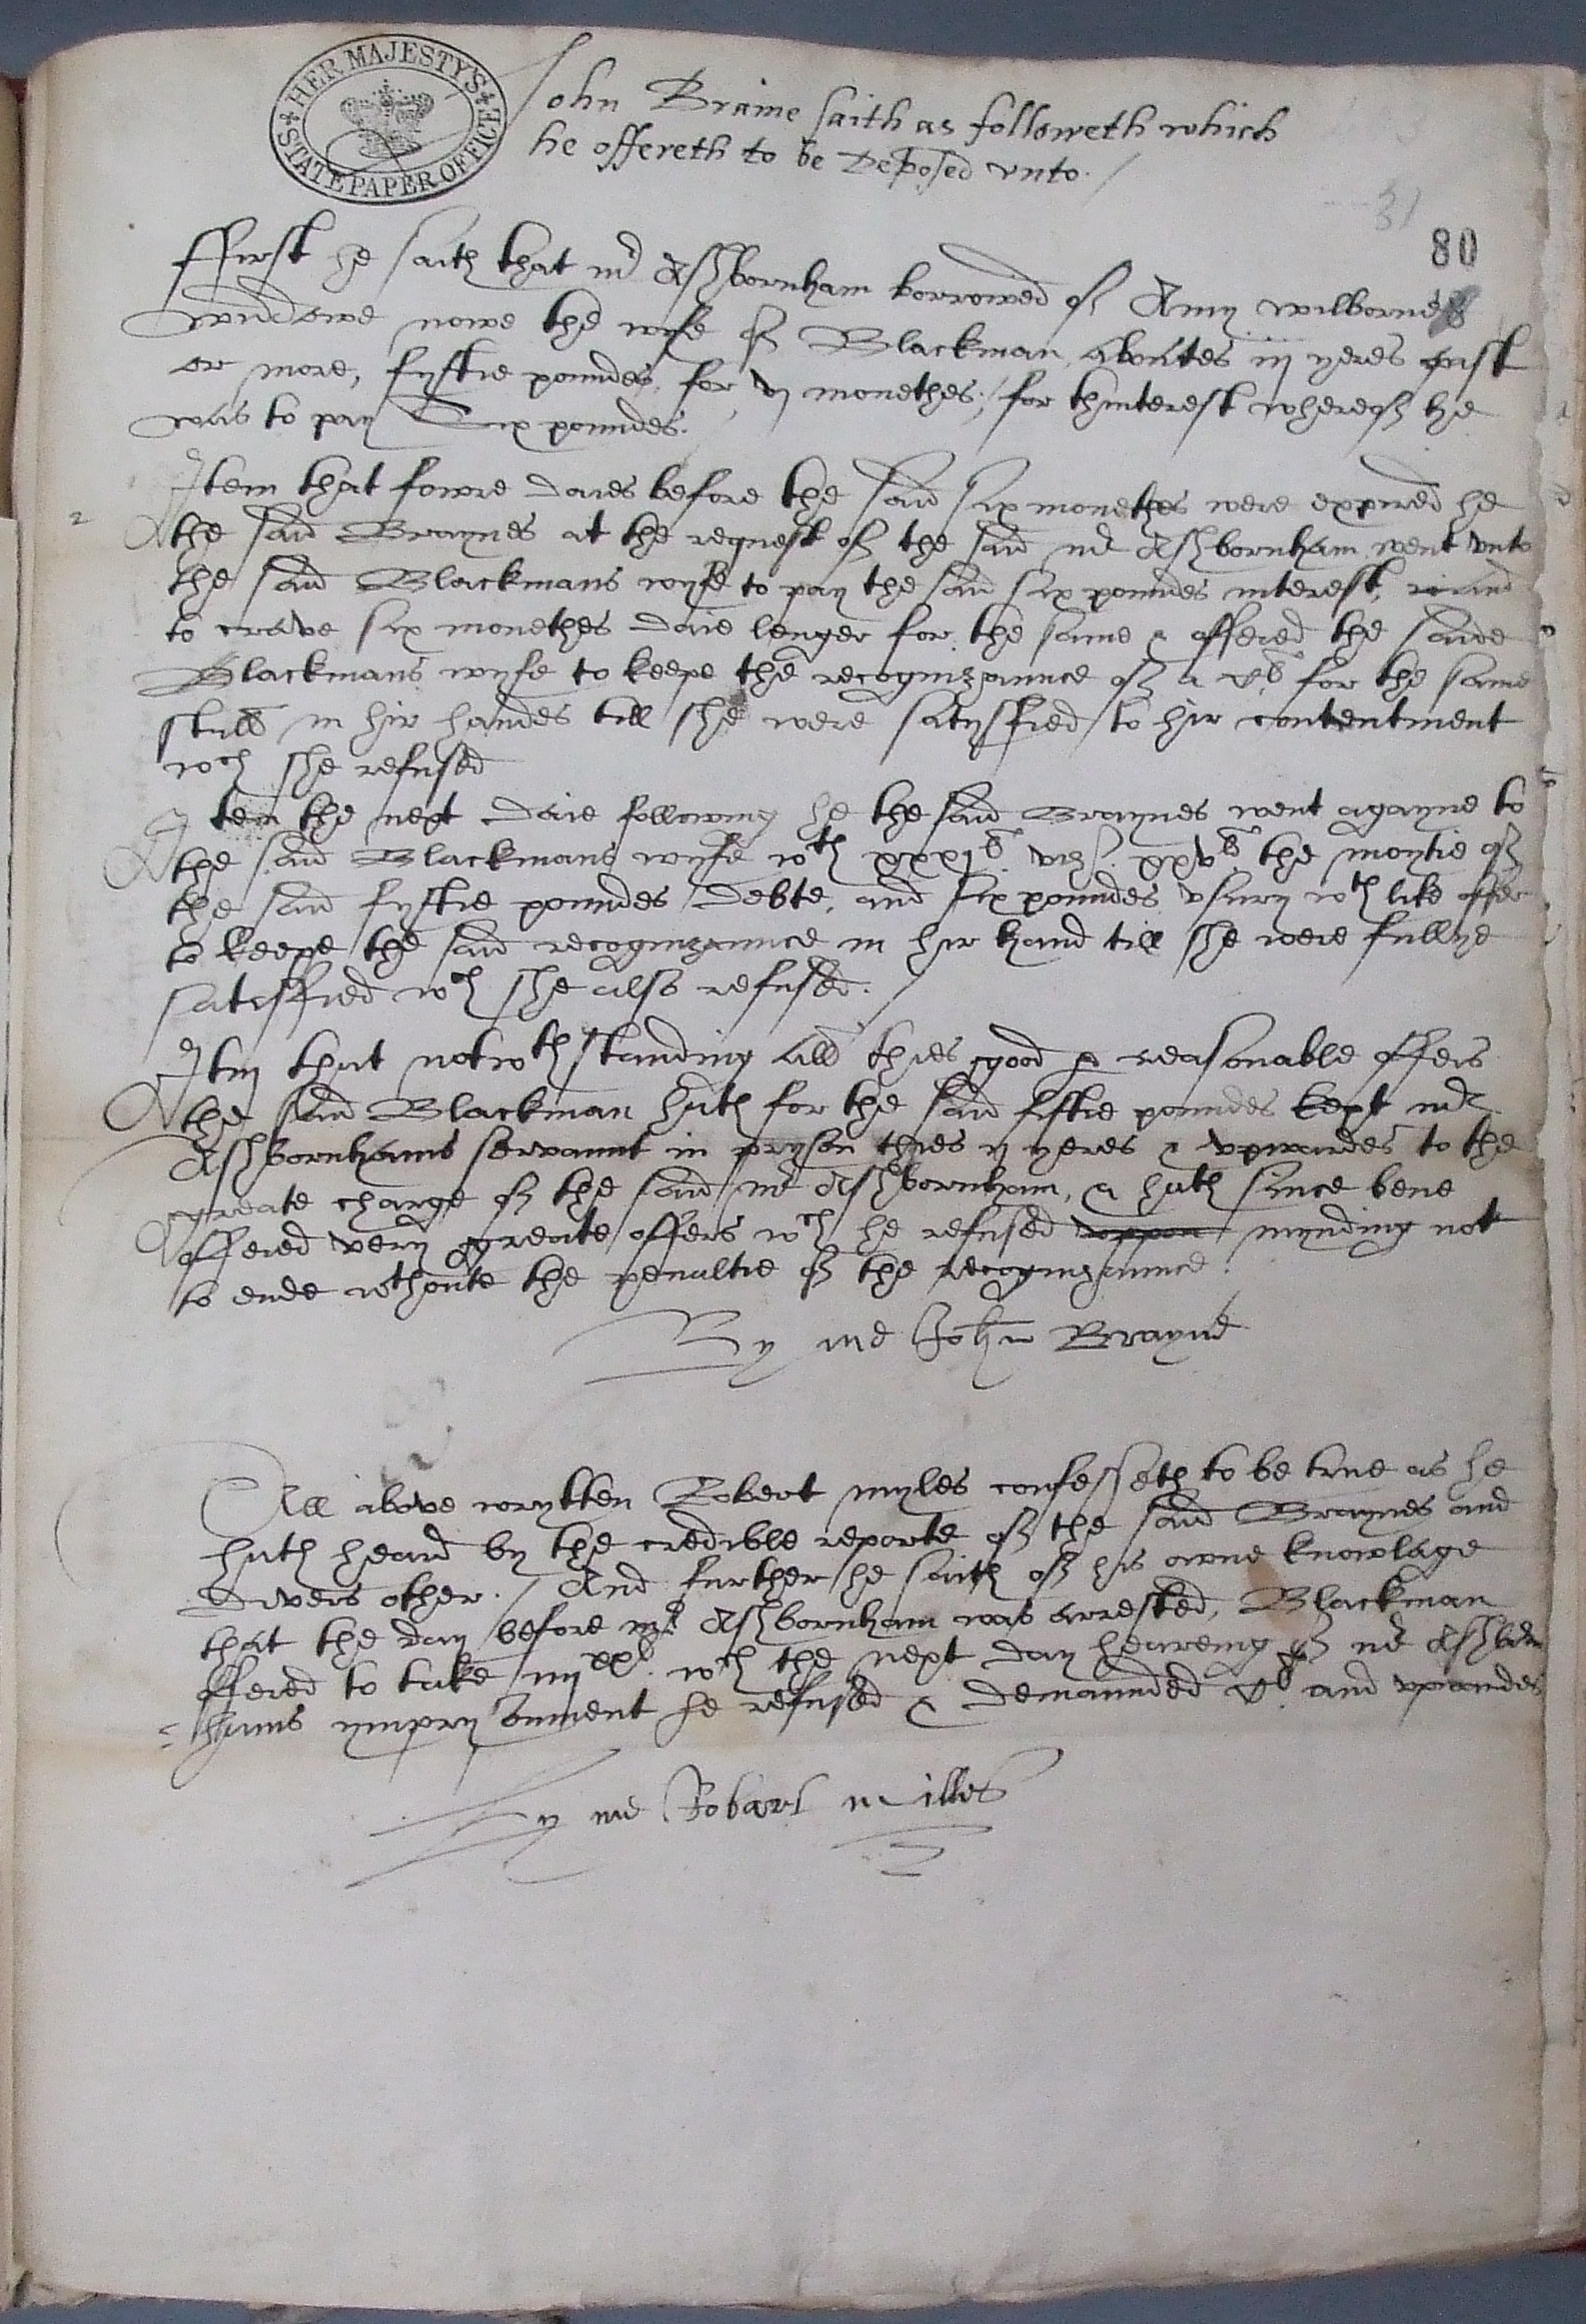 HER MAJESTY'S STATE PAPER OFFICE
John Braine saith as followeth which
he offereth to be deposed vnto.
31
80
ffirst he saith that mr Asshbornham borrowed of Amy wilborne
wydowe nowe the wyfe of Blackman, aboutes iij yeres past
or more, fyftie poundes, for vj monethes, for thinterest whereof he
was to pay Six poundes.
2
Item that fowre daies before the said six monethes were expired he
the said Braynes at the request of the said mr Asshbornham went vnto
the said Blackmans wyfe to pay the said six poundes interest, and
to crave six monethes daie lenger for the same & offered the saide
Blackmans wyfe to keepe the recognizaunce of a Cli for the same
styll in hir handes till she were satysfied to hir contentment
wch she refused
Item the next daie following he the said Braynes went agayne to
the said Blackmans wyfe wth xxxjli viz. xxvli the moytie of
the said fyftie poundes debte, and six poundes vsury wth like offer
to keepe the said recognizaunce in hir hand till she were fullye
satisfied wch she also refused.
Itm that notwthstanding all thies good & reasonable offers
the said Blackman hath for the said fiftie poundes kept mr
Asshbornhams servaunt in pryson thies ij yeres & vpwardes to the
greate charge of the said mr Asshbornham, & hath since bene
offered very greate offers wch he refused vppon mynding not
to ende wthoute the penaltie of the recognizaunce.
By me John Brayne
All above wrytten Robert myles confesseth to be true as he
hath heard by the credible reporte of the said Braynes and
divers other. And further he saith of his owne knowlage
that the day before mr Asshbornham was arrested, Blackman
offered to take iiijxxli wch the next day heareing of mr Asshborn
hams imprysonment he refused & demaunded Cli and vpwardes
By me Robart Milles